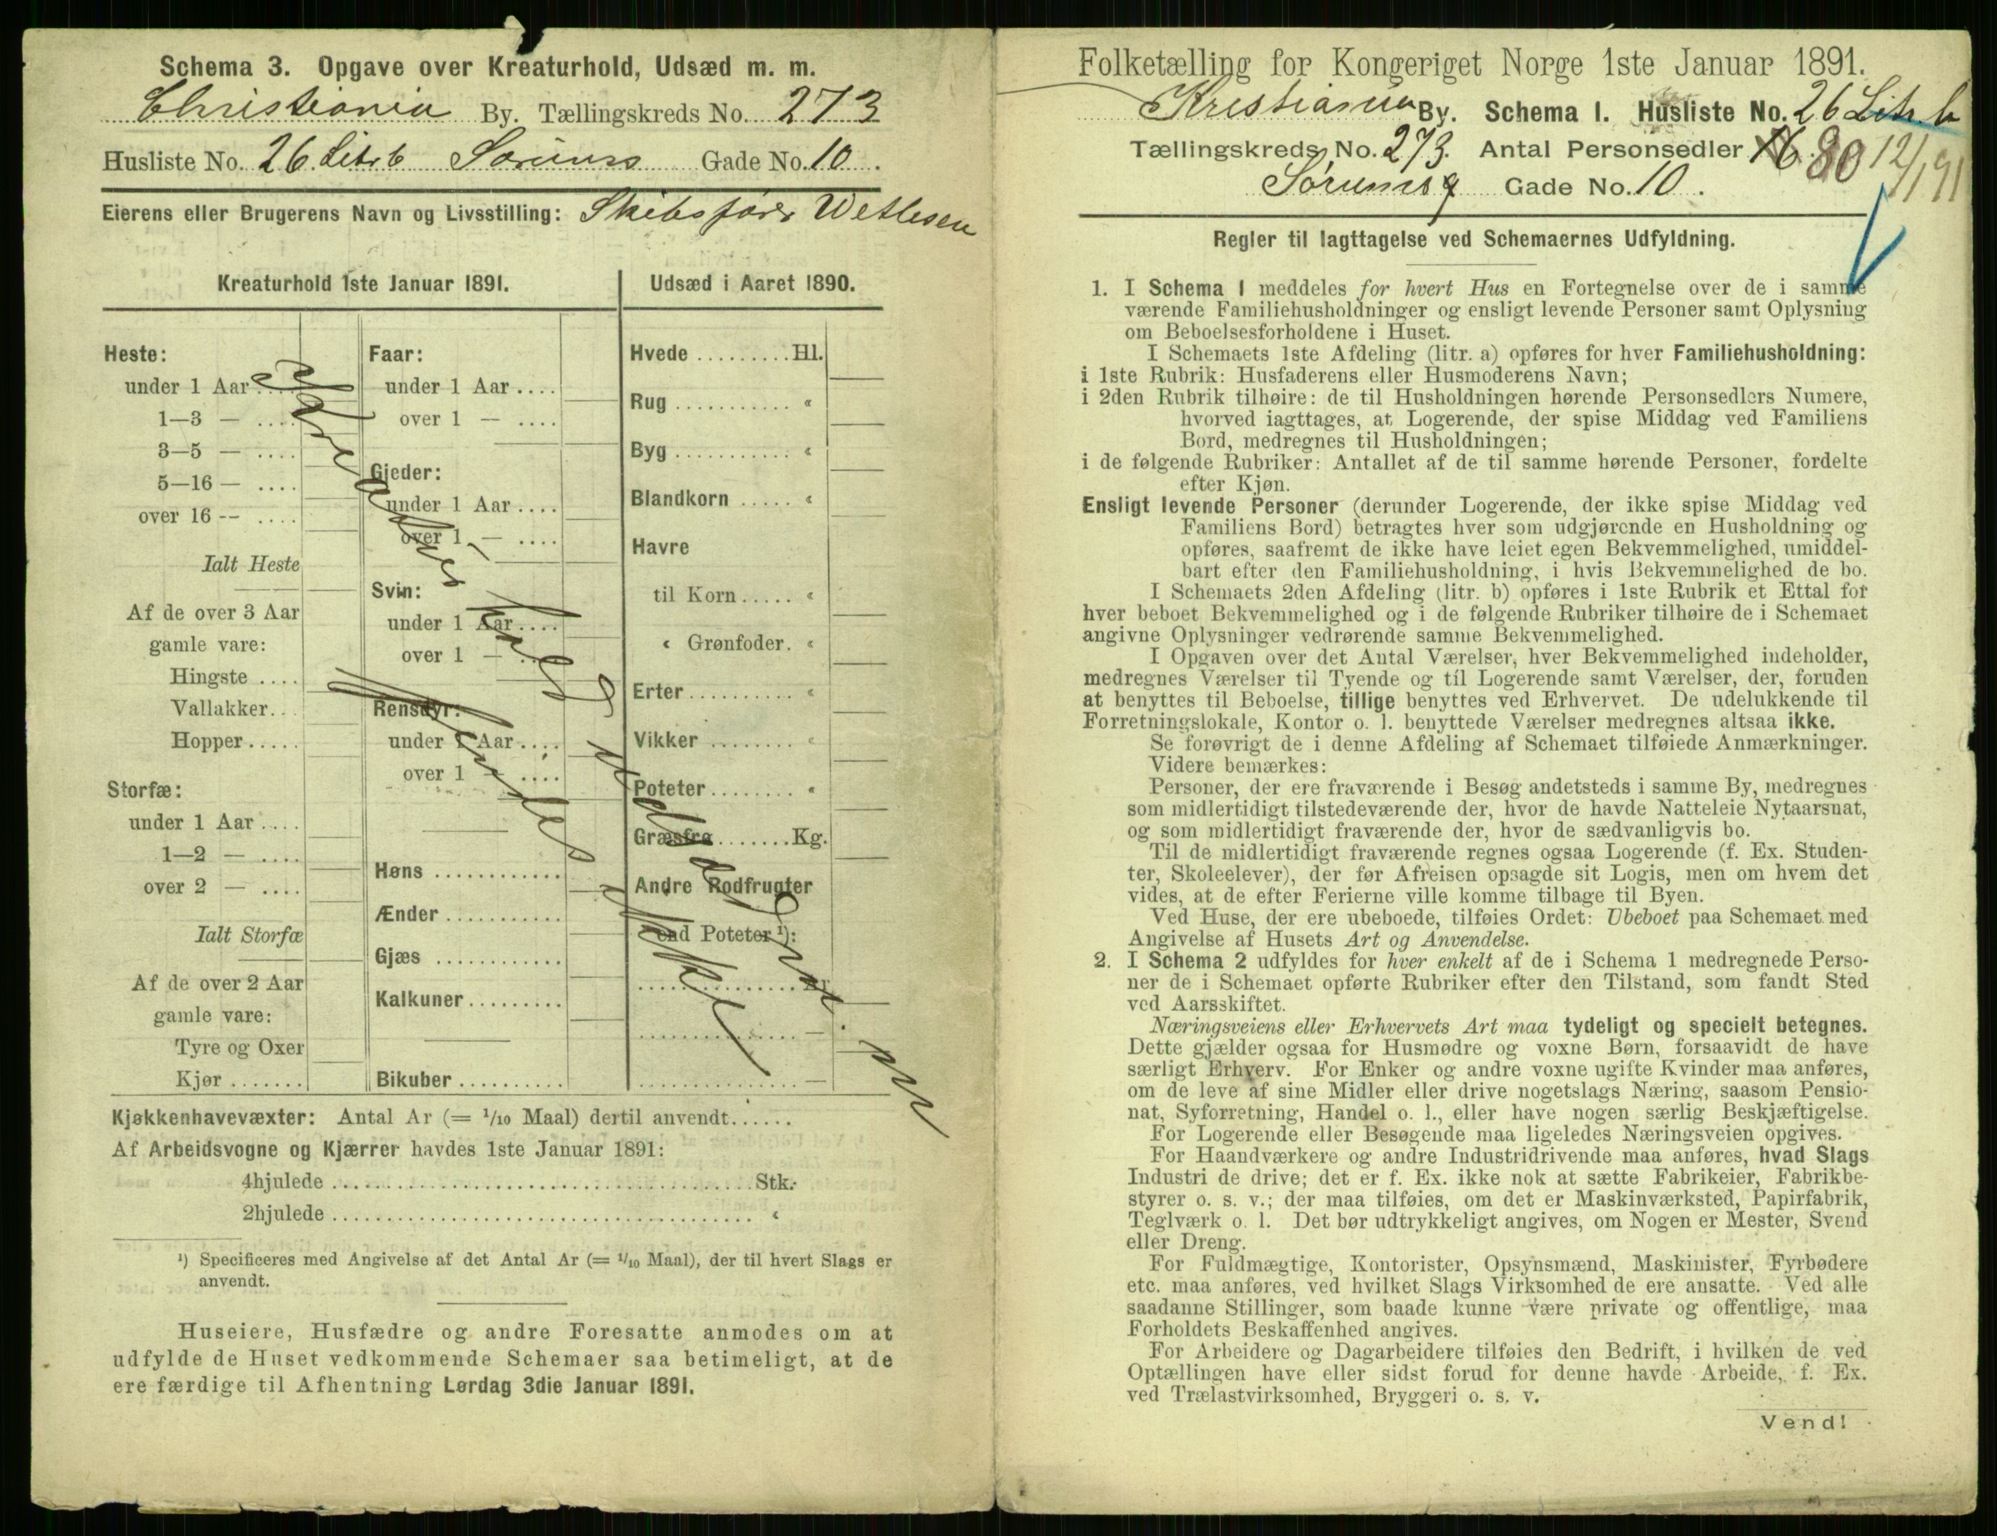 Schema 3. Opgave over Kreaturhold, Udsæd m. m.
Christiania By. Tællingskreds No. 273
Husliste No. 26 Litr b Sørums Gade No. 10.
Eierens eller Brugerens Navn og Livsstilling: Skibsfører Wetlesen
Kreaturhold 1ste Januar 1891.
Heste:
under 1 Aar....
1—3 — ....
3—5 — ....
5—16 — ....
over 16 -- ....
Ialt Heste
Af de over 3 Aar
gamle vare:
Hingste ....
Vallakker...
Hopper.....
Storfæ:
under 1 Aar ....
1—2 — ....
over 2 — ....
Ialt Storfæ
Af de over 2 Aar
gamle vare:
Tyre og Oxer
Kjør .......
Faar:
under 1 Aar ....
over 1 — ....
Gjeder:
under 1 Aar ....
over 1 — ....
Svin:
under 1 Aar ....
over 1 — ....
Rensdyr:
under 1 Aar ....
over 1 — ....
Høns ............
Ænder ...........
Gjæs ............
Kalkuner.........
Bikuber..........
Udsæd i Aaret 1890.
Hvede .........Hl.
Rug ........... «
Byg ........... «
Blandkorn ..... «
Havre
til Korn..... «
« Grønfoder. «
Erter ......... «
Vikker ........ «
Poteter........ «
Græsfrø.......Kg.
Andre Rodfrugter
end Poteter ¹):
............... Ar
............... —
............... —
Kjøkkenhavevæxter: Antal Ar (= 1/10 Maal) dertil anvendt......
Af Arbeidsvogne og Kjærrer havdes 1ste Januar 1891:
4hjulede ....................................Stk.
2hjulede .................................... «
¹) Specificeres med Angivelse af det Antal Ar (= 1/10 Maal), der til hvert Slags er
anvendt.
Huseiere, Husfædre og andre Foresatte anmodes om at
udfylde de Huset vedkommende Schemaer saa betimeligt, at de
ere færdige til Afhentning Lørdag 3die Januar 1891.
Folketælling for Kongeriget Norge 1ste Januar 1891.
Kristiania By. Schema I. Husliste No. 26 Litr. b
Tællingskreds No. 273. Antal Personsedler 80 12/1 91
Sørumsg Gade No. 10.
Regler til Iagttagelse ved Schemaernes Udfyldning.
1. I Schema 1 meddeles for hvert Hus en Fortegnelse over de i samme
værende Familiehusholdninger og ensligt levende Personer samt Oplysning
om Beboelsesforholdene i Huset.
I Schemaets 1ste Afdeling (litr. a) opføres for hver Familiehusholdning:
i 1ste Rubrik: Husfaderens eller Husmoderens Navn;
i 2den Rubrik tilhøire: de til Husholdningen hørende Personsedlers Numere,
hvorved iagttages, at Logerende, der spise Middag ved Familiens
Bord, medregnes til Husholdningen;
i de følgende Rubriker: Antallet af de til samme hørende Personer, fordelte
efter Kjøn.
Ensligt levende Personer (derunder Logerende, der ikke spise Middag ved
Familiens Bord) betragtes hver som udgjørende en Husholdning og
opføres, saafremt de ikke have leiet egen Bekvemmelighed, umiddel-
bart efter den Familiehusholdning, i hvis Bekvemmelighed de bo.
I Schemaets 2den Afdeling (litr. b) opføres i 1ste Rubrik et Ettal for
hver beboet Bekvemmelighed og i de følgende Rubriker tilhøire de i Schemaet
angivne Oplysninger vedrørende samme Bekvemmelighed.
I Opgaven over det Antal Værelser, hver Bekvemmelighed indeholder,
medregnes Værelser til Tyende og til Logerende samt Værelser, der, foruden
at benyttes til Beboelse, tillige benyttes ved Erhvervet. De udelukkende til
Forretningslokale, Kontor o. l. benyttede Værelser medregnes altsaa ikke.
Se forøvrigt de i denne Afdeling af Schemaet tilføiede Anmærkninger.
Videre bemærkes:
Personer, der ere fraværende i Besøg andetsteds i samme By, medregnes
som midlertidigt tilstedeværende der, hvor de havde Natteleie Nytaarsnat,
og som midlertidigt fraværende der, hvor de sædvanligvis bo.
Til de midlertidigt fraværende regnes ogsaa Logerende (f. Ex. Studen-
ter, Skoleelever), der før Afreisen opsagde sit Logis, men om hvem det
vides, at de efter Ferierne ville komme tilbage til Byen.
Ved Huse, der ere ubeboede, tilføies Ordet: Ubeboet paa Schemaet med
Angivelse af Husets Art og Anvendelse.
2. I Schema 2 udfyldes for hver enkelt af de i Schema 1 medregnede Perso-
ner de i Schemaet opførte Rubriker efter den Tilstand, som fandt Sted
ved Aarsskiftet.
Næringsveiens eller Erhvervets Art maa tydeligt og specielt betegnes.
Dette gjælder ogsaa for Husmødre og voxne Børn, forsaavidt de have
særligt Erhverv. For Enker og andre voxne ugifte Kvinder maa anføres,
om de leve af sine Midler eller drive nogetslags Næring, saasom Pensio-
nat, Syforretning, Handel o. l., eller have nogen særlig Beskjæftigelse.
For Logerende eller Besøgende maa ligeledes Næringsveien opgives.
For Haandværkere og andre Industridrivende maa anføres, hvad Slags
Industri de drive; det er f. Ex. ikke nok at sætte Fabrikeier, Fabrikbe-
styrer o. s. v.; der maa tilføies, om det er Maskinværksted, Papirfabrik,
Teglværk o. l. Det bør udtrykkeligt angives, om Nogen er Mester, Svend
eller Dreng.
For Fuldmægtige, Kontorister, Opsynsmænd, Maskinister, Fyrbødere
etc. maa anføres, ved hvilket Slags Virksomhed de ere ansatte. Ved alle
saadanne Stillinger, som baade kunne være private og offentlige, maa
Forholdets Beskaffenhed angives.
For Arbeidere og Dagarbeidere tilføies den Bedrift, i hvilken de ved
Optællingen have eller sidst forud for denne havde Arbeide, f. Ex.
ved Trælastvirksomhed, Bryggeri o. s. v.
Vend!